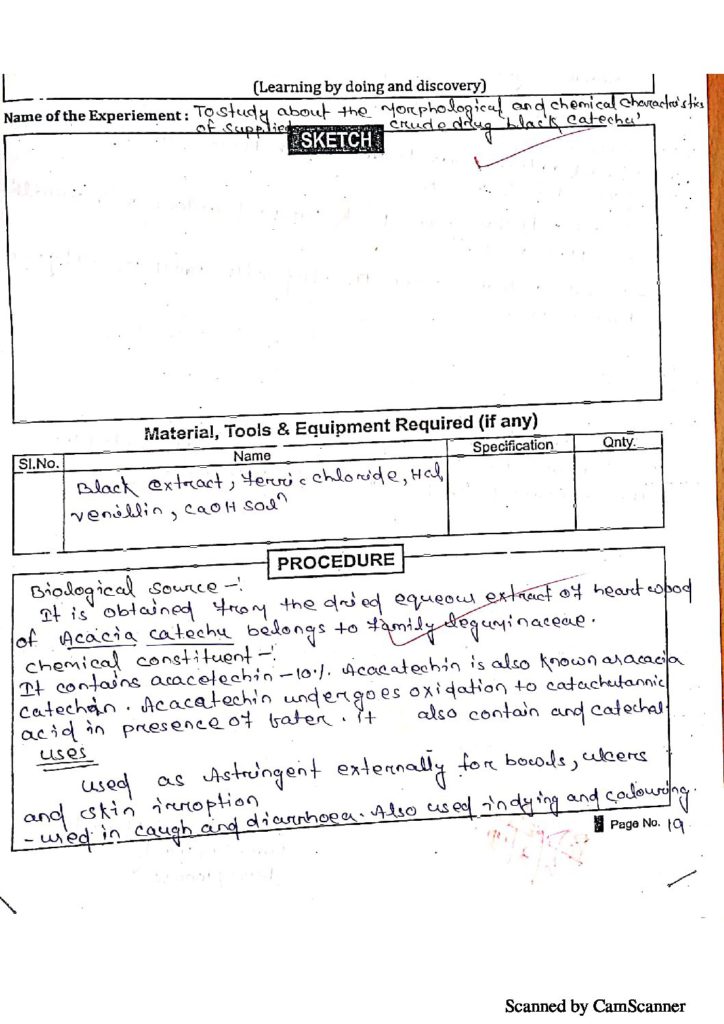 (Learning by doing and discovery)
Name of the Experiement : To study about the Morphological and chemical Characteristics
of supplied crude drug 'black catechu'
SKETCH
Material, Tools & Equipment Required (if any)
Sl.No. Name Specification Qnty.
Black extract, ferric chloride, Hcl
venillin, caOH solⁿ
PROCEDURE
Biological source -:
It is obtained from the dried equeous extract of heart wood
of Acacia catechu belongs to family leguminaceae.
chemical constituent -:
It contains acacetechin -10%. Acacatechin is also known as acacia
catechin. Acacatechin undergoes oxidation to catachutannic
acid in presence of water. it also contain and catechal
uses
used as Astringent externally for bowls, ulcers
and skin irroption
- used in caugh and diarrhoea. Also used in dying and colouring.
Page No. 19
Scanned by CamScanner